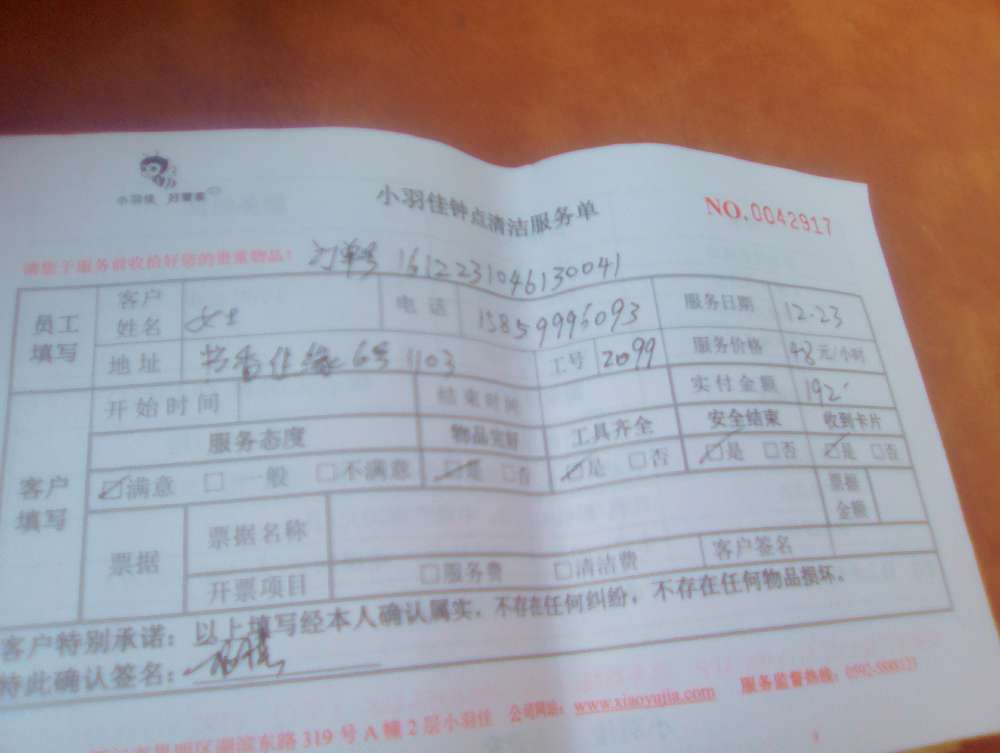 小羽佳 好管家
小羽佳钟点清洁服务单
NO.0042917
请您于服务前收拾好您的贵重物品!
订单号 1612231046130041
员工填写 客户姓名 女士 电话 15859996093 服务日期 12.23
地址 书香佳缘6号1103 工号 2099 服务价格 48元/小时
客户填写 开始时间 结束时间 实付金额 192
服务态度 物品完好 工具齐全 安全结束 收到卡片
☑满意 □一般 □不满意 ☑是 □否 ☑是 □否 ☑是 □否 ☑是 □否
票据 票据名称 票据金额
开票项目 □服务费 □清洁费 客户签名
客户特别承诺:以上填写经本人确认属实,不存在任何纠纷,不存在任何物品损坏。
特此确认签名:
思明区湖滨东路319号A幢2层小羽佳 公司网站:www.xiaoyujia.com 服务监督热线: